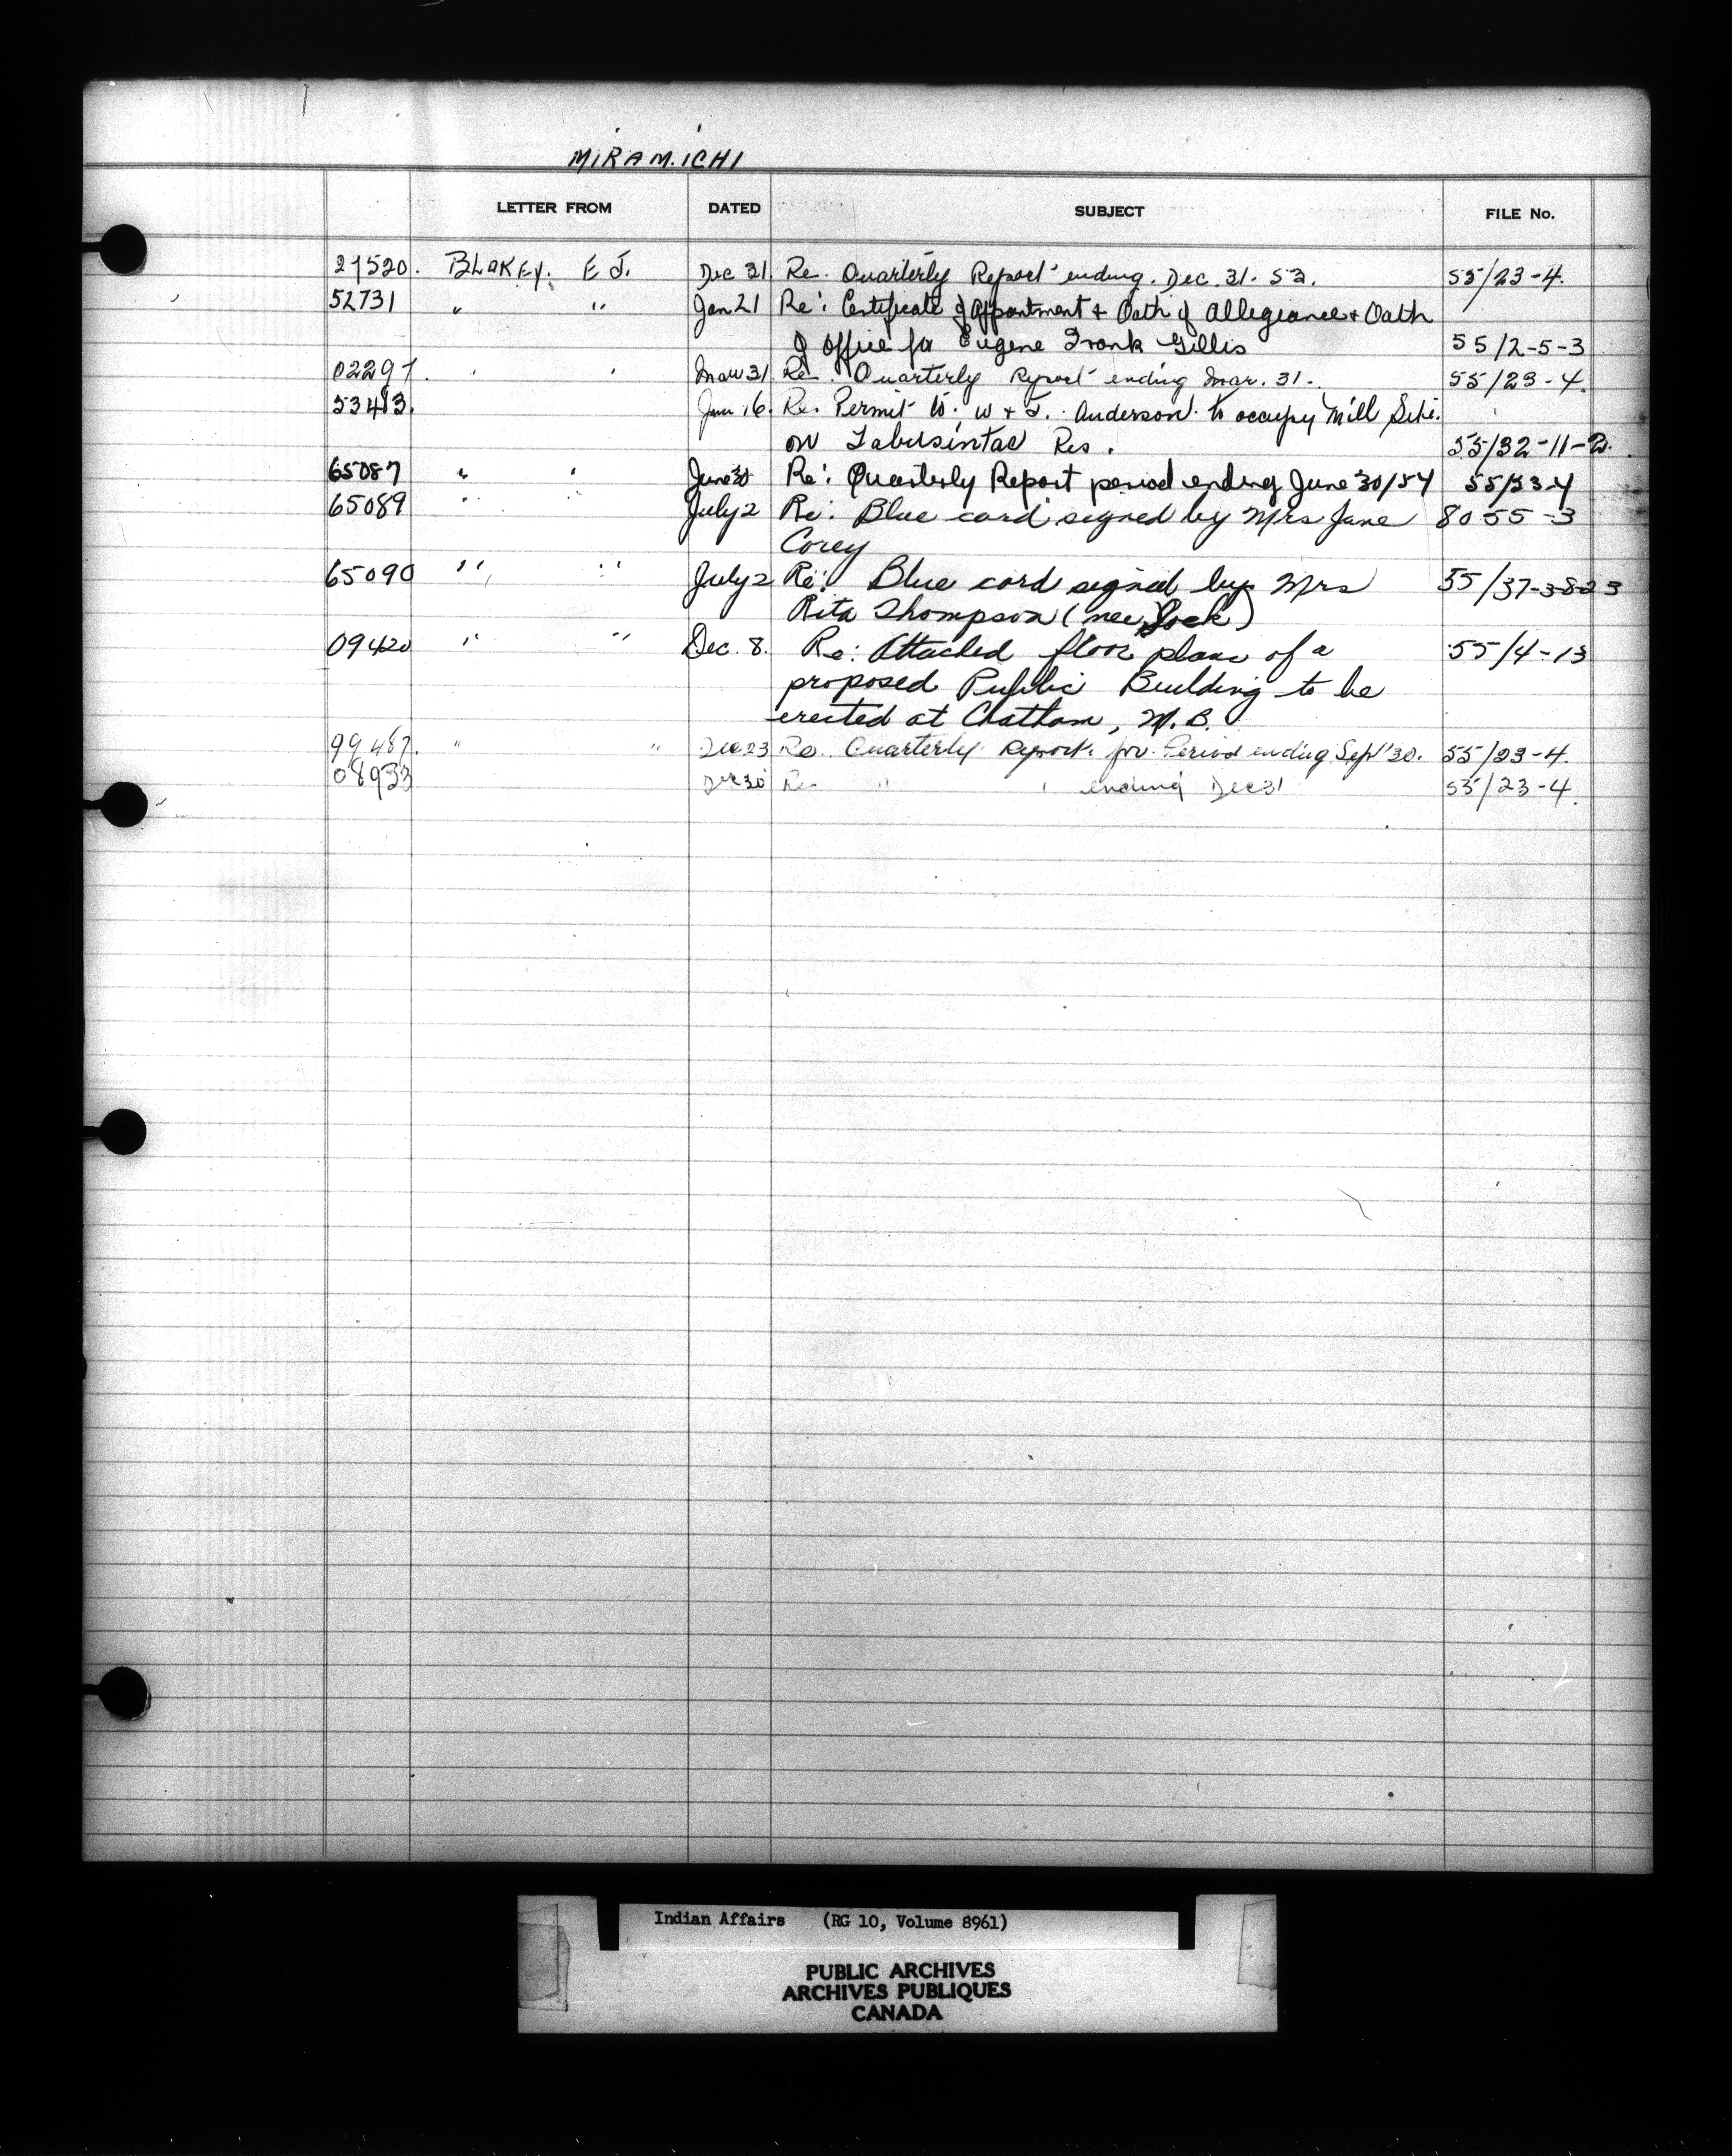 MIRAMICHI
LETTER FROM DATED SUBJECT FILE No.
29520. BLAKEY. E J. Dec 31. Re. Quarterly Report ending. Dec. 31. 53. 55/23-4.
52731 " " Jan 21 Re: Certificate of Appointment + Oath of Allegiance + Oath
of Office for Eugene Frank Gillis 55/2-5-3
02297. " " Mar 31 Re. Quarterly Report ending Mar. 31. 55/23-4.
53483. 16. Re. Permit to. W + J. Anderson to occupy Mill Site.
on Tabusintac Res. 55/32-11-2.
65087 " " June 30 Re: Quarterly Report period ending June 30/54 55/23-4
65089 " " July 2 Re: Blue card signed by Mrs Jane 8055-3
Corey
65090 " " July 2 Re: Blue card signed by Mrs 55/37-3-8-23
Rita Thompson (nee Jock)
09420 " " Dec. 8. Re: Attached floor plans of a 55/4-13
proposed Public Building to be
erected at Chatham, N.B.
99487. " " Dec 23 Re. Quarterly Report for Period ending Sept 30. 55/23-4.
08933 Dec 30 Re " " ending Dec 31 55/23-4.
Indian Affairs (RG 10, Volume 8961)
PUBLIC ARCHIVES
ARCHIVES PUBLIQUES
CANADA